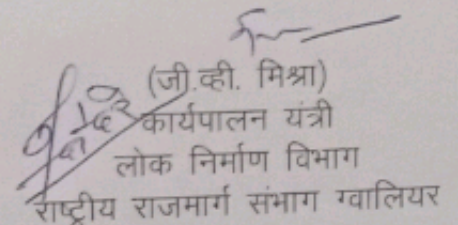 (जी.व्ही. मिश्रा)
कार्यपालन यंत्री
लोक निर्माण विभाग
राष्ट्रीय राजमार्ग संभाग ग्वालियर